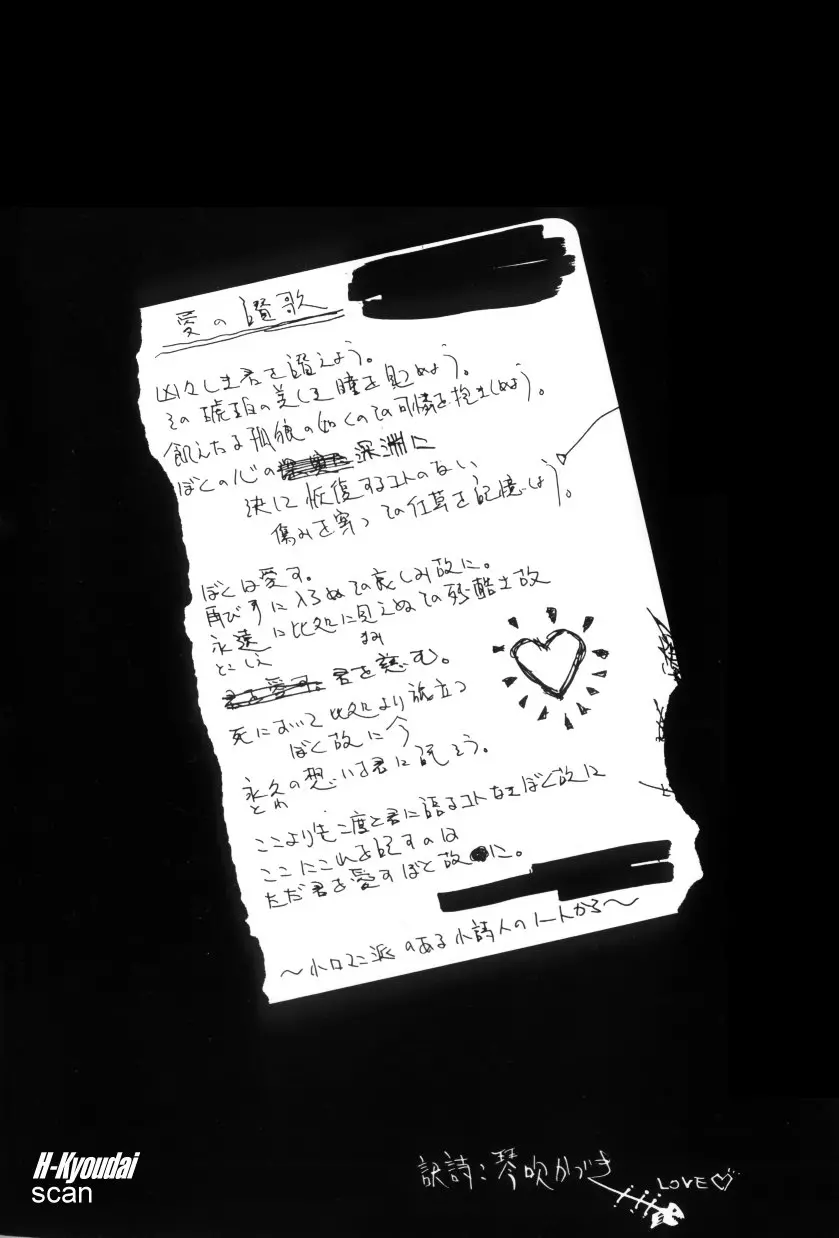 愛の讃歌
凶々しき君を讃えよう。
その琥珀の美しき瞳を見つめよう。
飢えたる孤狼の如くのその可憐を抱きしめよう。
ぼくの心の深淵に
決して恢復するコトのない
傷みを穿つその仕草を記憶しよう。
ぼくは愛す。
再び手に入らぬその哀しみ故に。
永遠に此処に見えぬその残酷さ故
とこしえ
まみ
君を愛す。君を慈む。
死において此処より旅立つ
ぼく故に今
永久の想いを君に託そう。
とわ
ここよりも二度と君に語るコトなきぼく故に
ここにこれを記すのは
ただ君を愛すぼと故に。
〜小ロマン派のある小詩人のノートから〜
訳詩:琴吹かづき
LOVE♡
H-Kyoudai
scan